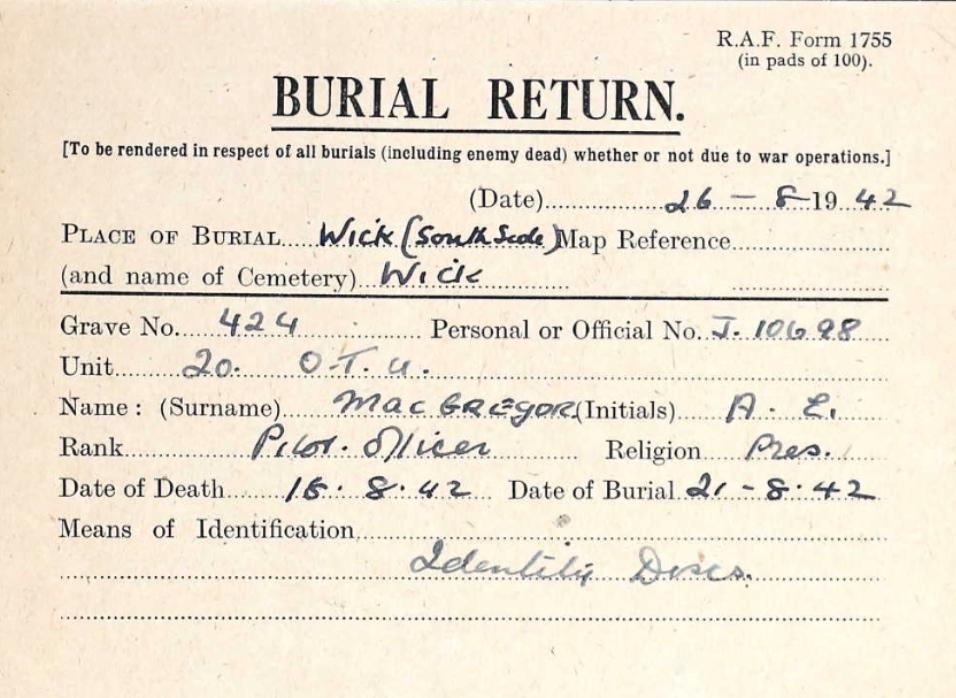 R.A.F. Form 1755
(in pads of 100).
BURIAL RETURN.
[To be rendered in respect of all burials (including enemy dead) whether or not due to war operations.]
(Date) 26 - 8 19 42
PLACE OF BURIAL Wick (South Side) Map Reference
(and name of Cemetery) Wick
Grave No. 424 Personal or Official No. J. 10698
Unit 20. O.T.U.
Name: (Surname) MacGREGOR (Initials) A.
Rank Pilot. Officer Religion Pres.
Date of Death 8.42 Date of Burial 21-8.42
Means of Identification
Identity Discs.